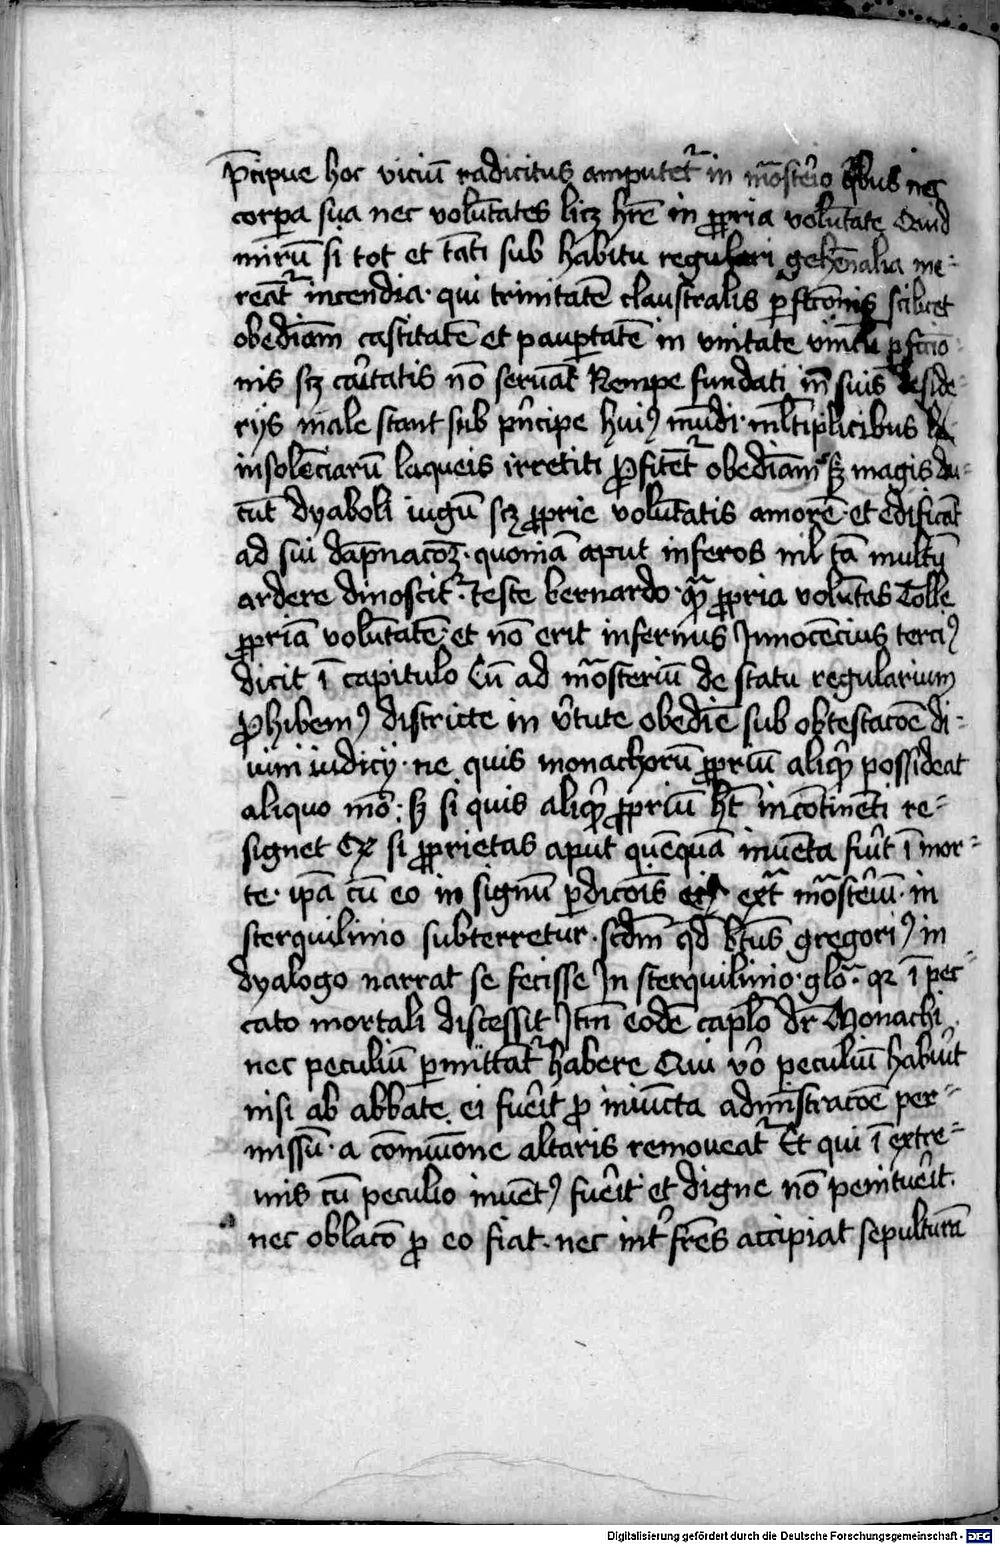 p̄cipue hoc viciū radicitus amputet᷑ in mo͞ster̄io q̄bus nec
corpora sua nec volūtates licꝫ hr̄e in ꝓpria volūtate Quid
mirū si tot et tāti sub habitu regulari gehēnalia me-
reāt᷑ incendia· qui trinitatē claustralis ꝑfcc̄onis scilicet
obediām castitatē et pauꝑtatē in vnitate vinculi ꝑfccio-
nis scꝫ cāritatis nō seruāt Nempe fundati in suis deside-
rijs male stant sub pn̄cipe huiꝰ mūdi· ml̄tiplicibus
insolēciarū laqueis irretiti ꝓfitēt᷑ obediām sꝫ magis du-
cūt dyaboli iugū scꝫ ꝓprie volūtatis amorē· et edificāt
ad sui dāpnacōꝫ· quoniā aput inferos nil tā multū
ardere dinoscit᷑· teste bernardo· qᷓ ꝓpria volūtas Tolle
ꝓpriā volūtatē· et nō erit infernus Jnnocēcius terciꝰ
dicit ī capitulo Cū ad mo͞steriū de statu regularium
ꝓhibemꝰ districte in v̄tute obediē sub obtestacōe di-
uini iudicij· ne quis monachorū ꝓpriū aliqd̄ possideat
aliquo mō· sꝫ si quis aliqd̄ ꝓpriū hт̄ incōtinēti re-
signet Et si ꝓprietas aput quēquā inuēta fūit ī mor-
te· ip̄a cū eo in signū ꝑdicōis extᷓ mo͞ster̄iū· in
sterquilinio subterretur· scd̄m qd̄ btūs gregoriꝰ in
dyalogo narrat se fecisse Jn sterquilinio· gloᷓ· qꝛ ī pec-
cato mortali discessit Jtm̄ eodē caplo̅ dr̄ Monachi
nec peculiū ꝑmittāt᷑ habere Qui vo̅ peculiū habūit
nisi ab abbate ei fūerit ꝓ iniūcta admīstracōe per-
missū· a cōmūione altaris remoueat᷑ Et qui ī extre-
mis cū peculio inuētꝰ fūerit et digne nō penitūerit·
nec oblacō ꝓ eo fiat· nec int᷑ fr̄es accipiat sepulturā
Digitalisierung gefördert durch die Deutsche Forschungsgemeinschaft - DFG